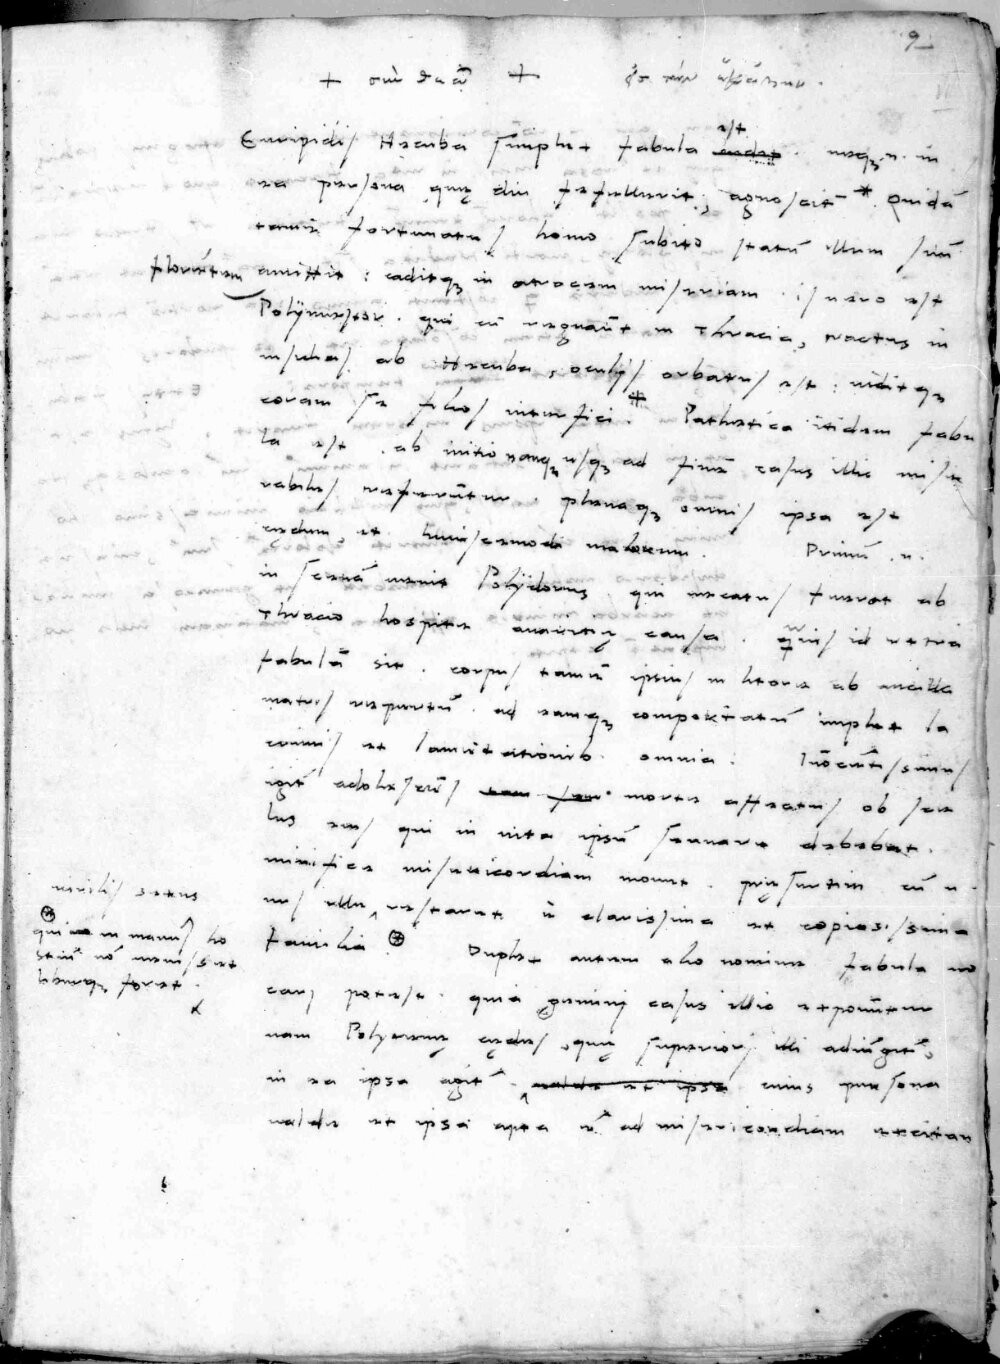 9
+ σὺν θεῷ +
Euripidis Hecuba simplex fabula est . neq; n. in
ea persona, quę diu fefellerit, agnoscit̃ * Quidã
tamẽ fortunatus homo subito statũ illum suũ
florentem amittit : caditq; in atrocem miseriam . is uero est
Polymestor . qui cũ regnarẽt in Thracia, tractus in
insidias ab Hecuba, oculis orbatus est : uiditq;
coram se filios interfici . * Pathetica itidem fabu
la est . ab initio nanq; usq; ad finẽ casus illic mise
rabiles referũtur . plenaq; omnis ipsa est
cędum, et huiuscemodi malorum . Primũ . n.
in scenã uenit Polydorus, qui necatus fuerat ab
Thracio hospite auaritię causa . q̃uis id extra
fabulã sit . corpus tamẽ ipsius in litore ab ancilla
matris repertũ . ad eamq; comportatũ implet la
crimis et lamentationib. omnia . Inocẽtissimus
igit̃ adolescẽs morte affectus ob sce
lus eius qui in uita ipsũ seruare debebat .
mirifice misericordiam mouet . pręsertim cũ u
nus ille restaret ẽ clarissima et copiosissima
familia . Duplex autem alio nomine fabula uo
cari potest . quia gemini casus illic exponũtur
nam Polyxenę cędes, quę superiori illi adiũgit̃,
in ea ipsa agit̃ . cuius persona
ualde et ipsa apta ẽ ad misericordiam excitan
uirilis sexus
qui in manus ho
stiũ nõ uenisset
liberq; foret .